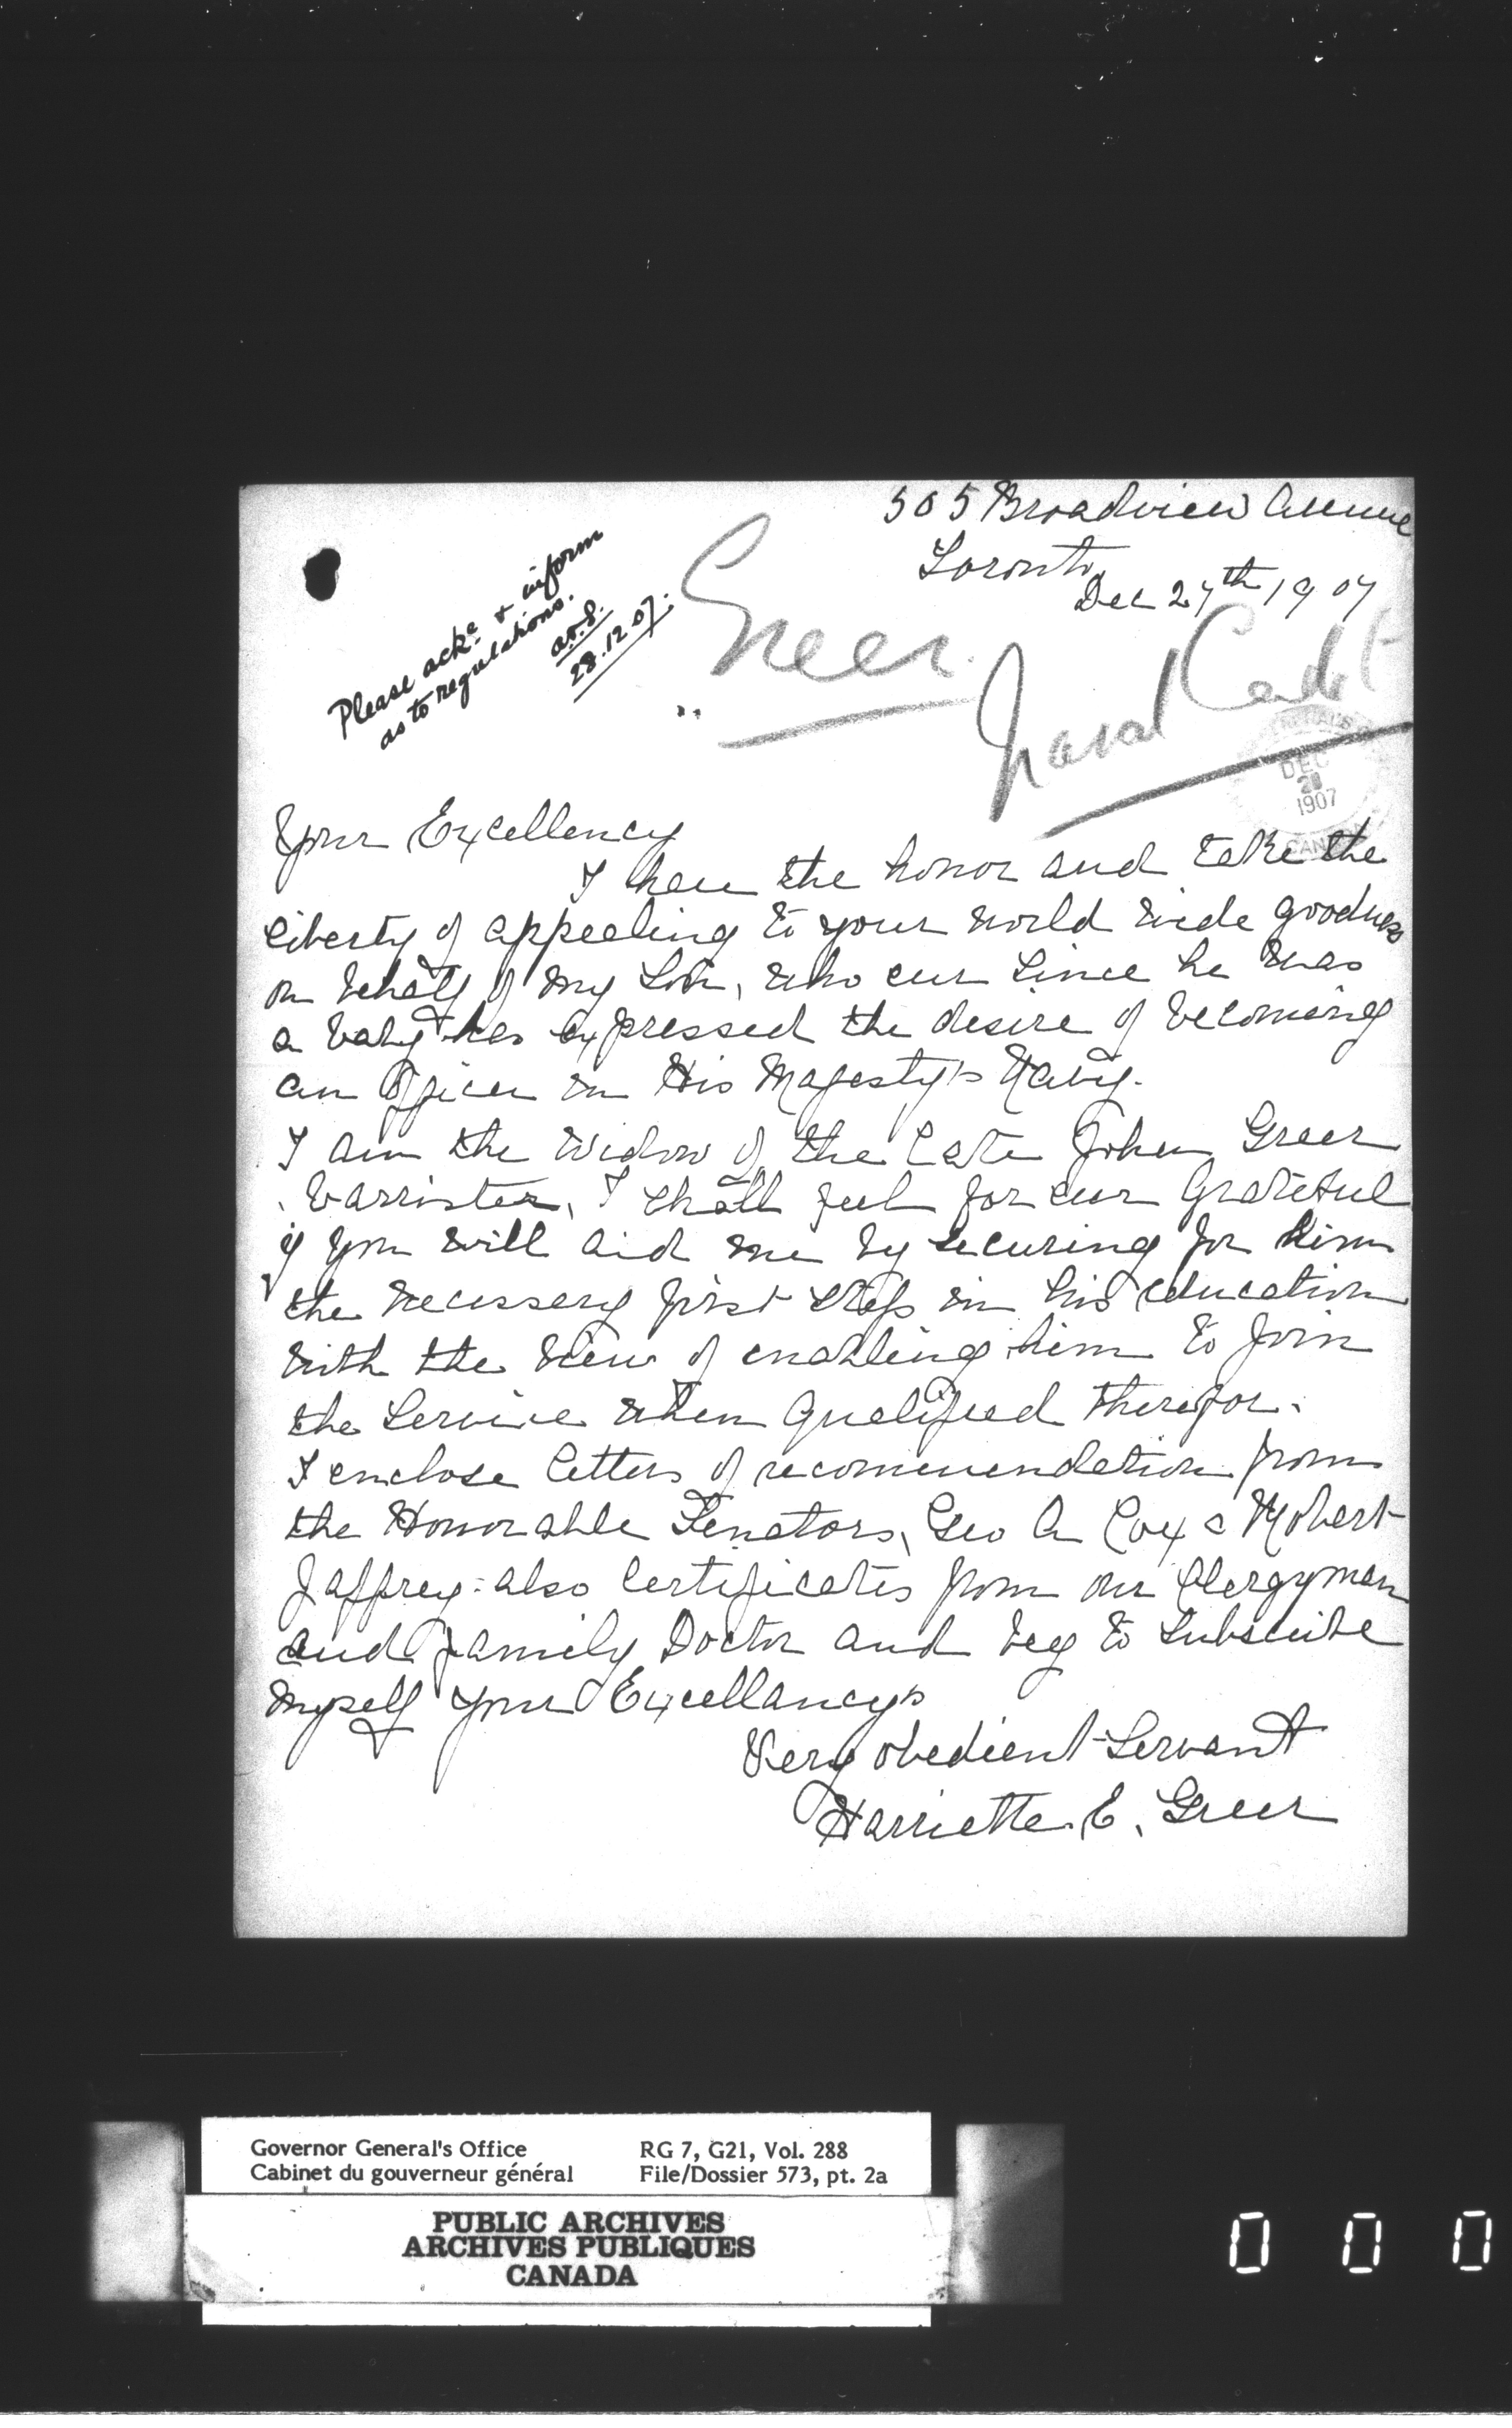 505 Broadview Avenue
Toronto,
Dec 27th 1907
Please ackc. & inform
as to regulations.
28.12.07.
Greer.
Naval Cadet
DEC
28
1907
CAN
Your Excellency
I have the honor and take the
liberty of appealing to your world wide goodness
on behalf of my Son, who ever since he was
a baby has expressed the desire of becoming
an Officer in His Magesty's Navy.
I am the widow of the late John Greer
barrister, I shall feel for ever Grateful
if you will aid me by securing for him
the necessary first steps in his education
with the view of enabling him to join
the Service when Qualified therefor.
I enclose letters of recommendation from
the Honorable Senators, Geo A Cox & Robert
Jaffrey- also Certificates from our Clergyman
and family Doctor and beg to Subscribe
myself your Excellancy's
Very obedient Servant
Harriette. E. Greer
Governor General's Office RG 7, G21, Vol. 288
Cabinet du gouverneur général File/Dossier 573, pt. 2a
PUBLIC ARCHIVES
ARCHIVES PUBLIQUES
CANADA
0 0 0